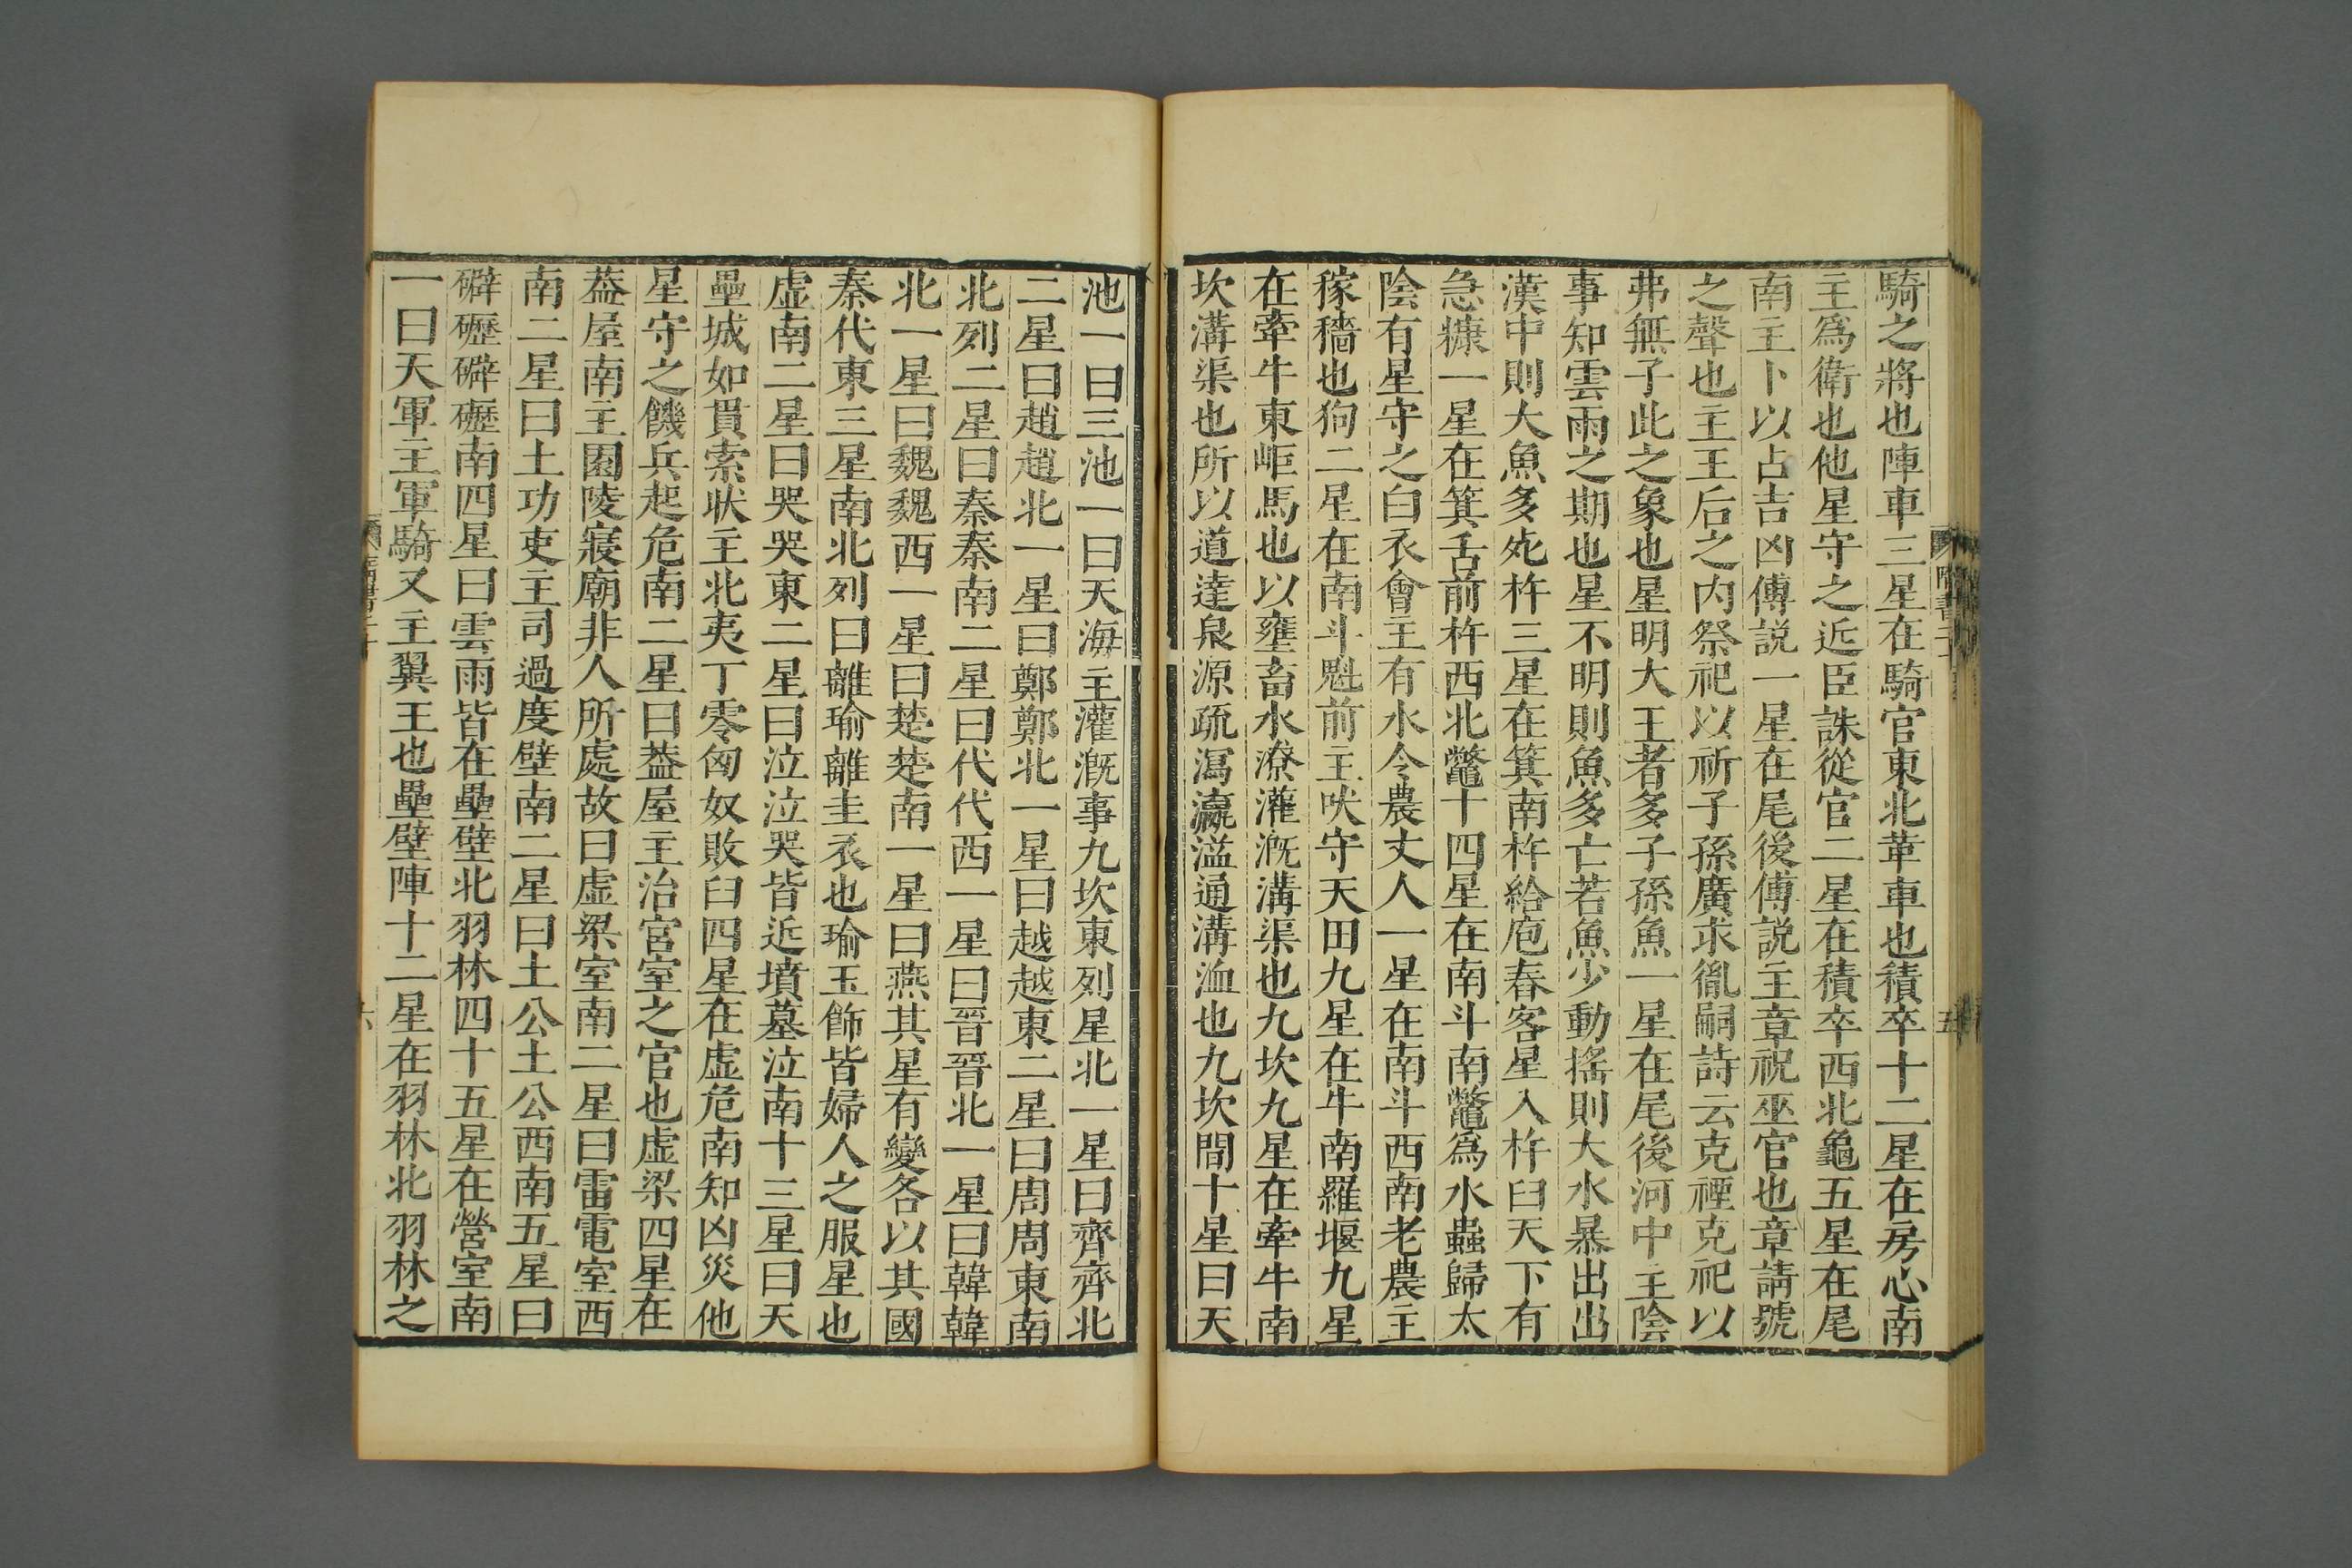 騎之將也陣車三星在騎官東北革車也積卒十二星在房心南
主爲衛也他星守之近臣誅從官二星在積卒西北龜五星在尾
南主卜以占吉凶傅説一星在尾後傅説主章祝巫官也章請號
之聲也主王后之内祭祀以祈子孫廣求胤嗣詩云克禋克祀以
弗無子此之象也星明大王者多子孫魚一星在尾後河中主陰
事知雲雨之期也星不明則魚多亡若魚少動搖則大水暴出出
漢中則大魚多死杵三星在箕南杵給庖舂客星入杵臼天下有
急糠一星在箕舌前杵西北鼈十四星在南斗南鼈爲水蟲歸太
陰有星守之白衣會主有水令農丈人一星在南斗西南老農主
稼穡也狗二星在南斗魁前主吠守天田九星在牛南羅堰九星
在牽牛東岠馬也以壅畜水潦灌漑溝渠也九坎九星在牽牛南
坎溝渠也所以道達泉源疏瀉瀛溢通溝洫也九坎間十星曰天
池一曰三池一曰天海主灌漑事九坎東列星北一星曰齊齊北
二星曰趙趙北一星曰鄭鄭北一星曰越越東二星曰周周東南
北列二星曰秦秦南二星曰代代西一星曰晉晉北一星曰韓韓
北一星曰魏魏西一星曰楚楚南一星曰燕其星有變各以其國
秦代東三星南北列曰離瑜離圭衣也瑜玉飾皆婦人之服星也
虚南二星曰哭哭東二星曰泣泣哭皆近墳墓泣南十三星曰天
壘城如貫索狀主北夷丁零匈奴敗臼四星在虚危南知凶災他
星守之饑兵起危南二星曰葢屋主治宮室之官也虚梁四星在
葢屋南主園陵寢廟非人所處故曰虚梁室南二星曰雷電室西
南二星曰土功吏主司過度壁南二星曰土公土公西南五星曰
礔礰礔礰南四星曰雲雨皆在壘壁北羽林四十五星在營室南
一曰天軍主軍騎又主翼王也壘壁陣十二星在羽林北羽林之